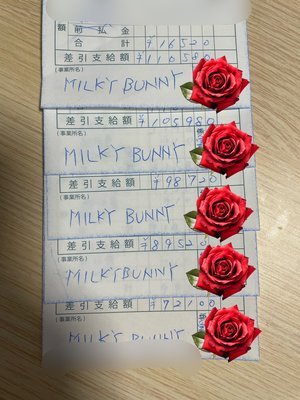 額 前払金
合計 ¥16520
差引支給額 ¥110580
(事業所名)
MILKY BUNNY
差引支給額 ¥105980
(事業所名)
MILKY BUNNY
差引支給額 ¥98720
(事業所名)
MILKY BUNNY
差引支給額 ¥89520
(事業所名)
MILKY BUNNY
差引支給額 ¥72100
(事業所名)
MILKY